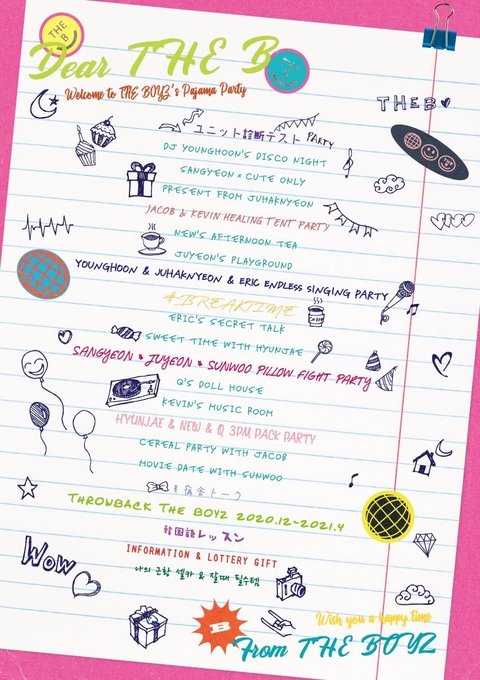 THE B
Dear THE B
Welcome to THE BOYZ's Pajama Party
THE B
ユニット診断テスト PARTY
DJ YOUNGHOON'S DISCO NIGHT
SANGYEON × CUTE ONLY
PRESENT FROM JUHAKNYEON
JACOB & KEVIN HEALING TENT PARTY
NEW'S AFTERNOON TEA
JUYEON'S PLAYGROUND
YOUNGHOON & JUHAKNYEON & ERIC ENDLESS SINGING PARTY
A BREAKTIME
ERIC'S SECRET TALK
SWEET TIME WITH HYUNJAE
SANGYEON × JUYEON × SUNWOO PILLOW FIGHT PARTY
Q'S DOLL HOUSE
KEVIN'S MUSIC ROOM
HYUNJAE & NEW & Q 3PM PACK PARTY
CEREAL PARTY WITH JACOB
MOVIE DATE WITH SUNWOO
宿舎トーク
THROWBACK THE BOYZ 2020.12~2021.4
韓国語レッスン
INFORMATION & LOTTERY GIFT
나의 근황 셀카 & 잘때 필수템
WOW
B
Wish you a happy time
From THE BOYZ